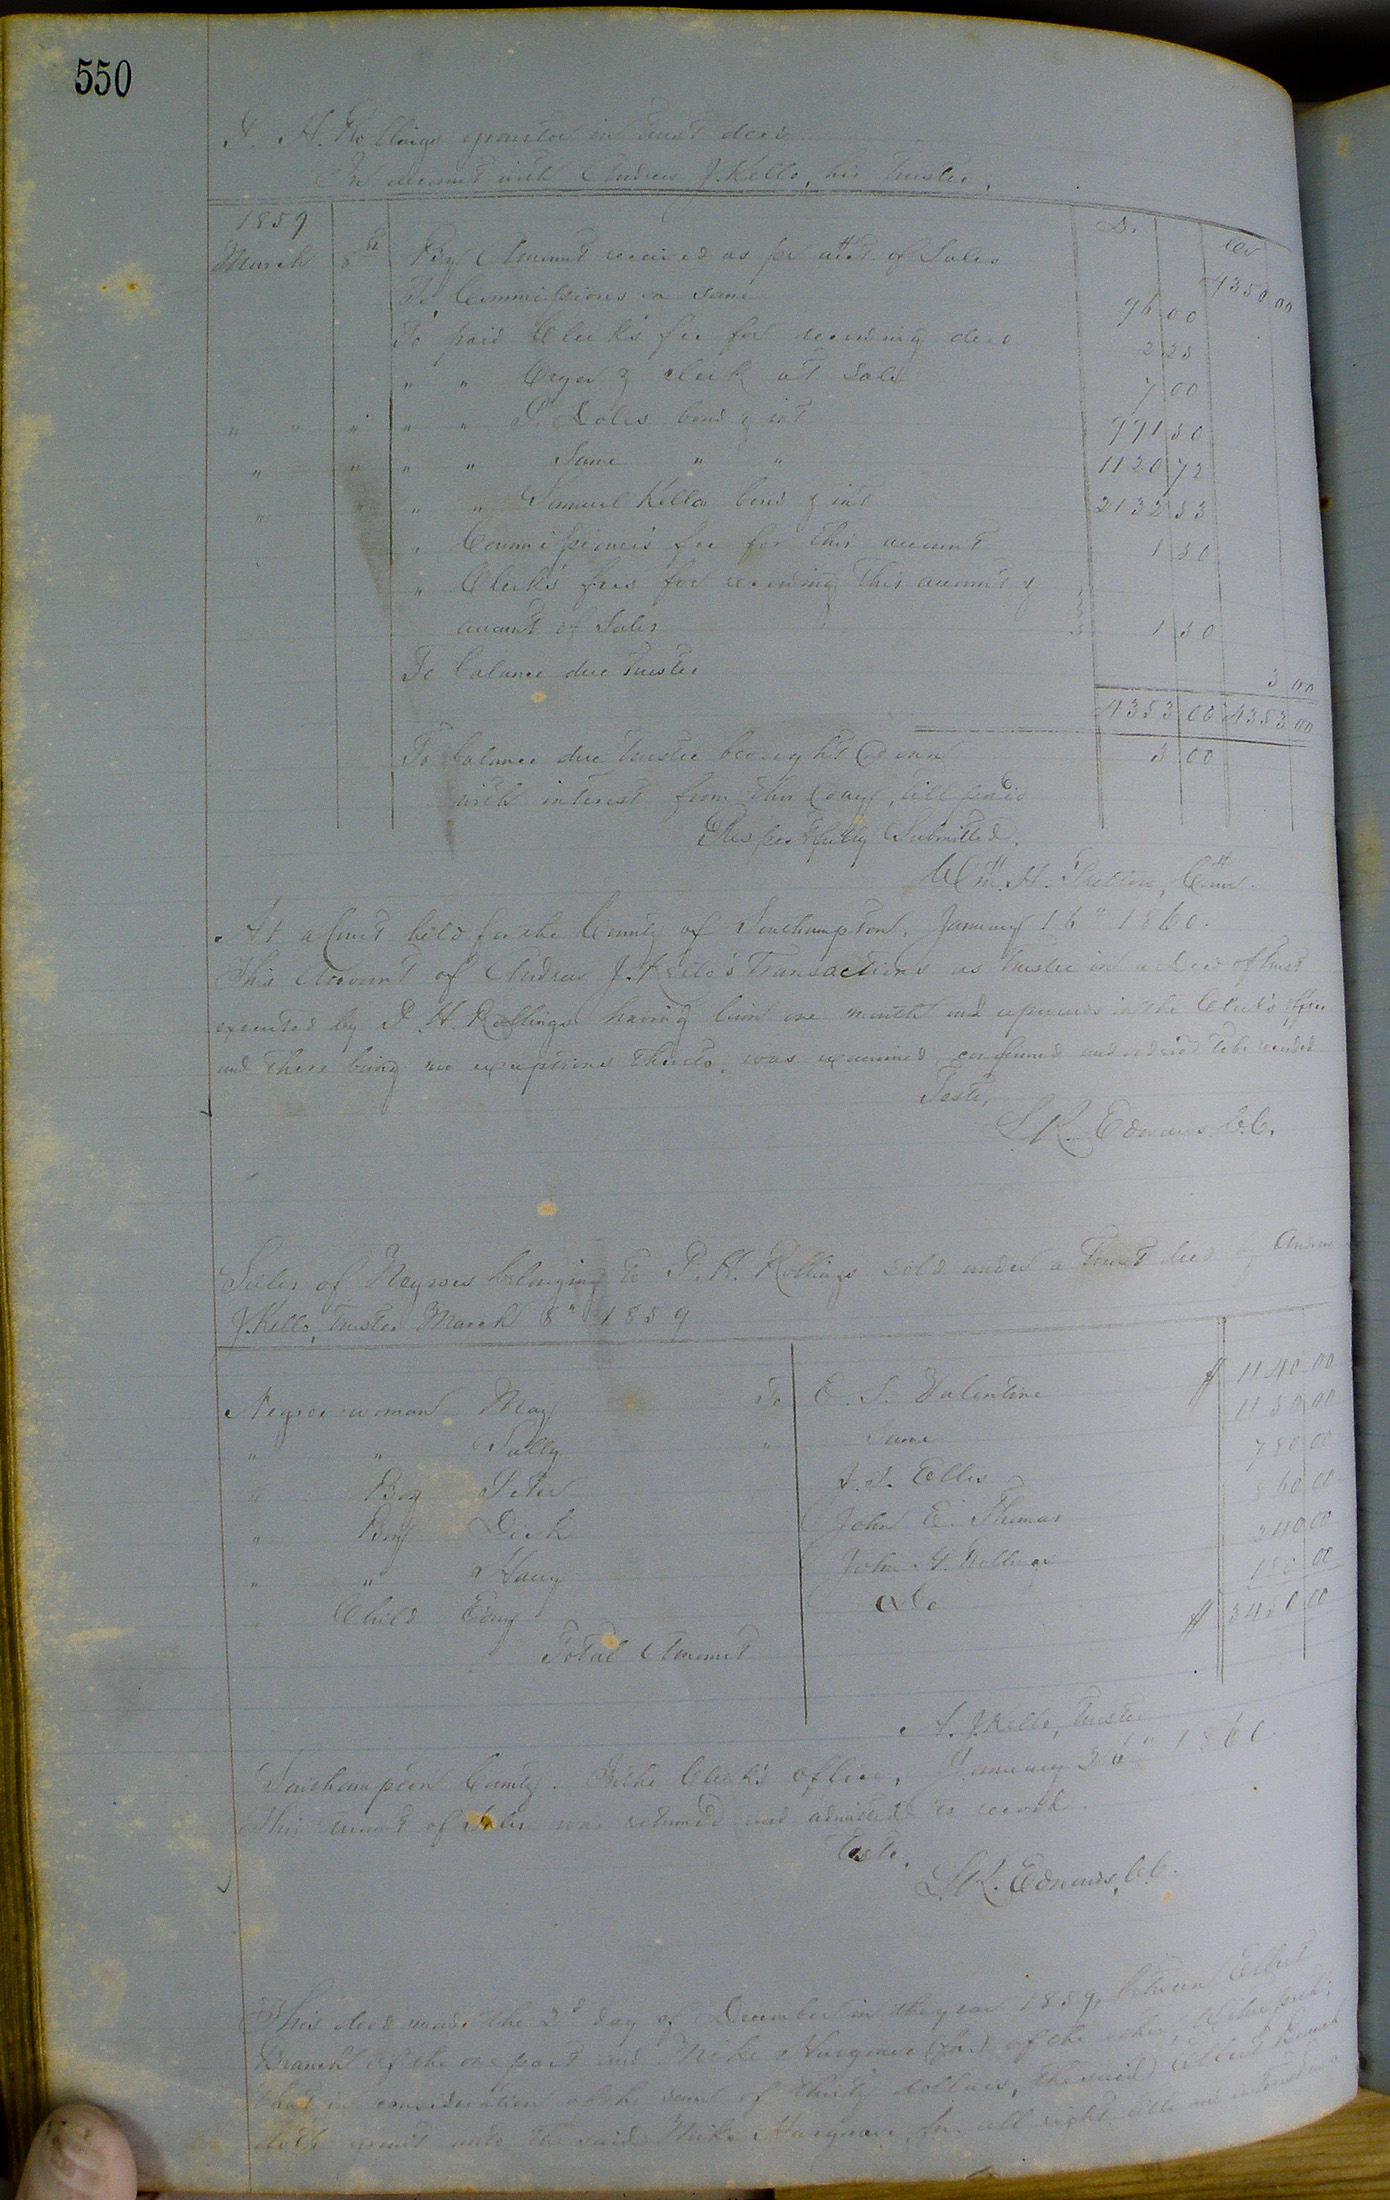 550
P. H. Rollings grantor in trust deed
In account with Andrew J. Kello, his trustee.
1859 Dr Cr
March 8th By Amount received as per acct of Sales 4350 00
To Commissions on same 96 00
To paid Clerk's fee for recording deed 2 25
" " Cryer & clerk at Sale 7 00
" " " " " P. Doles bond & int 991 50
" " " " Same " " 1120 72
" " " Samuel Kello bond & int 2132 53
" Commissioners fee for this account 1 50
" Clerk's fees for recording this account &
account of Sales 1 50
To balance due trustee 3 00
4353 00 4353 00
To balance due trustee brought down 3 00
with interest from this day, till paid
Respectfully Submitted.
Wm. H. Comr.
At a Court held for the County of Southampton, January 16" 1860.
This Account of Andrew J. Kello's transactions as trustee in a Deed of trust
executed by P. H. Rollings having lain one month and upwards in the Clerk's office
and there being no exceptions thereto, was examined confirmed and ordered to be recorded
Teste,
L. R. Edwards, C.C.
Sales of Negroes belonging to P. H. Rollings sold under a Trust deed by Andrew
J. Kello, trustee March 8" 1859
Negroe woman May To E. S. Valentine $ 1140 00
" " Sally " Same 1150 00
" Boy Peter J. S. Ellis 750 00
" Boy Dick John E. Thomas 560 00
" " Harry John H. Rollings 240 00
" Child Edny do 150 00
Total Amount $ 3450 00
A. J. Kello, trustee
Southampton County. In the Clerk's office, January 26" 1860.
This account of Sales was returned and admitted to record.
Teste,
L. R. Edwards, C.C.
This deed made the 2d day of December in the year 1859, between Elbert
Branch of the one part and Mike Hargrave (fn) of the other,
that in consideration of the sum of thirty dollars, the said Elbert Branch
doth grant unto the said Mike Hargrave, fn. all right title and interest in